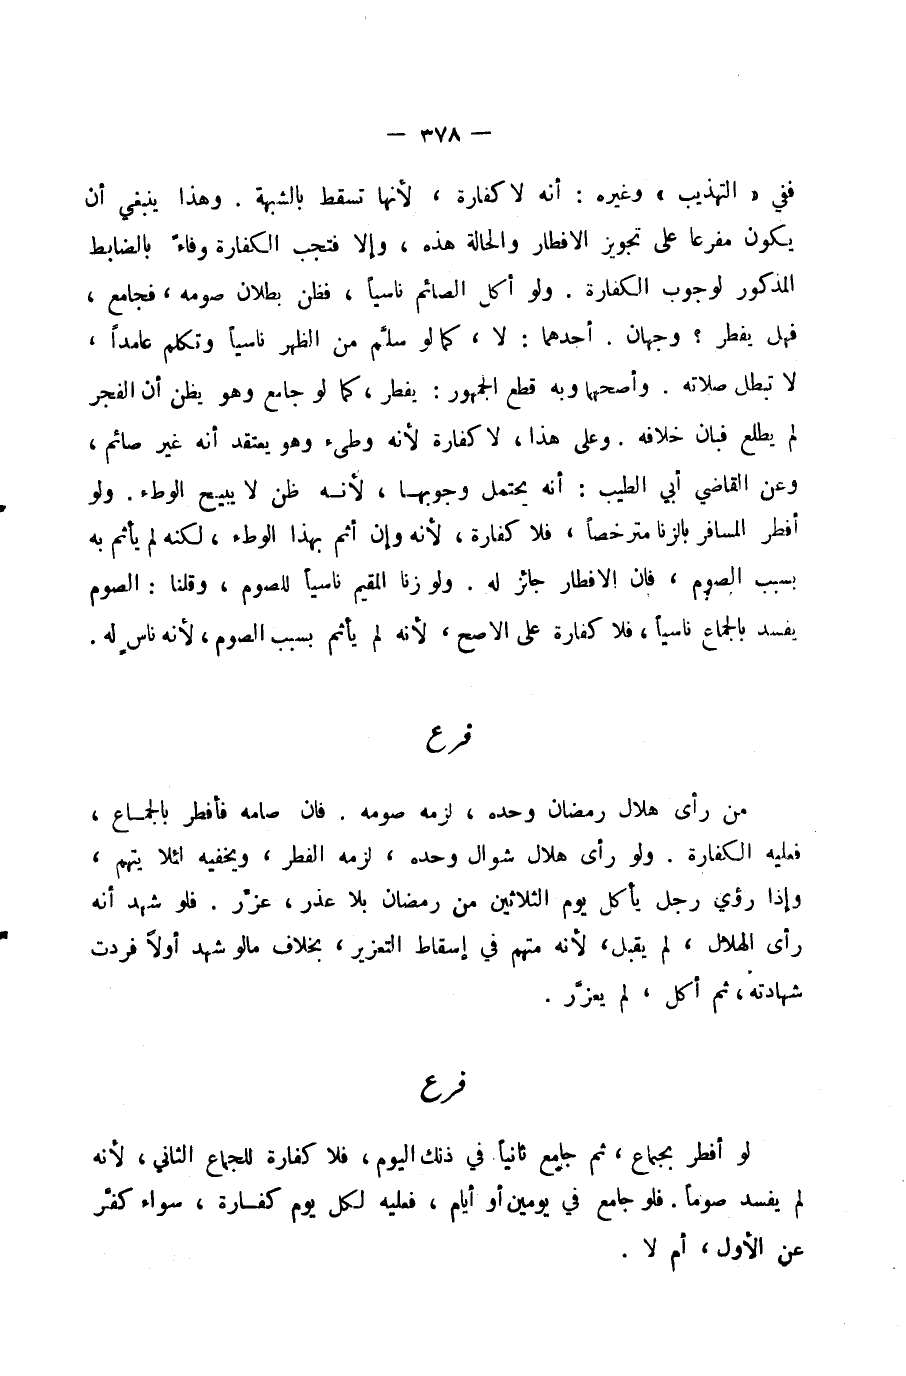 — ٣٧٨ —
ففي « التهذيب » وغيره : أنه لا كفارة ، لأنها تسقط بالشبهة . وهذا ينبغي أن
يكون مفرعا على تجويز الافطار والحالة هذه ، وإلا فتجب الكفارة وفاءً بالضابط
المذكور لوجوب الكفارة . ولو أكل الصائم ناسياً ، فظن بطلان صومه ، فجامع ،
فهل يفطر ؟ وجهان . أحدهما : لا ، كما لو سلَّم من الظهر ناسياً وتكلم عامداً ،
لا تبطل صلاته . وأصحهما وبه قطع الجمهور : يفطر ، كما لو جامع وهو يظن أن الفجر
لم يطلع فبان خلافه . وعلى هذا ، لا كفارة لأنه وطىء وهو يعتقد أنه غير صائم ،
وعن القاضي أبي الطيب : أنه يحتمل وجوبهـا ، لأنـه ظن لا يبيح الوطء . ولو
أفطر المسافر بالزنا مترخصاً ، فلا كفارة ، لأنه وإن أثم بهذا الوطء ، لكنه لم يأثم به
بسبب الصوم ، فان الافطار جائز له . ولو زنا المقيم ناسياً للصوم ، وقلنا : الصوم
يفسد بالجماع ناسياً ، فلا كفارة على الاصح ، لأنه لم يأثم بسبب الصوم ، لأنه ناسٍ له .
فرع
من رأى هلال رمضان وحده ، لزمه صومه . فان صامه فأفطر بالجمـاع ،
فعليه الكفارة . ولو رأى هلال شوال وحده ، لزمه الفطر ، ويخفيه لئلا يتهم ،
وإذا رؤي رجل يأكل يوم الثلاثين من رمضان بلا عذر ، عزّر . فلو شهد أنه
رأى الهلال ، لم يقبل ، لأنه متهم في إسقاط التعزير ، بخلاف مالو شهد أولاً فردت
شهادته ، ثم أكل ، لم يعزَّر .
فرع
لو أفطر بجماع ، ثم جامع ثانياً في ذلك اليوم ، فلا كفارة للجماع الثاني ، لأنه
لم يفسد صوماً . فلو جامع في يومين أو أيام ، فعليه لكل يوم كفـارة ، سواء كفَّر
عن الأول ، أم لا .